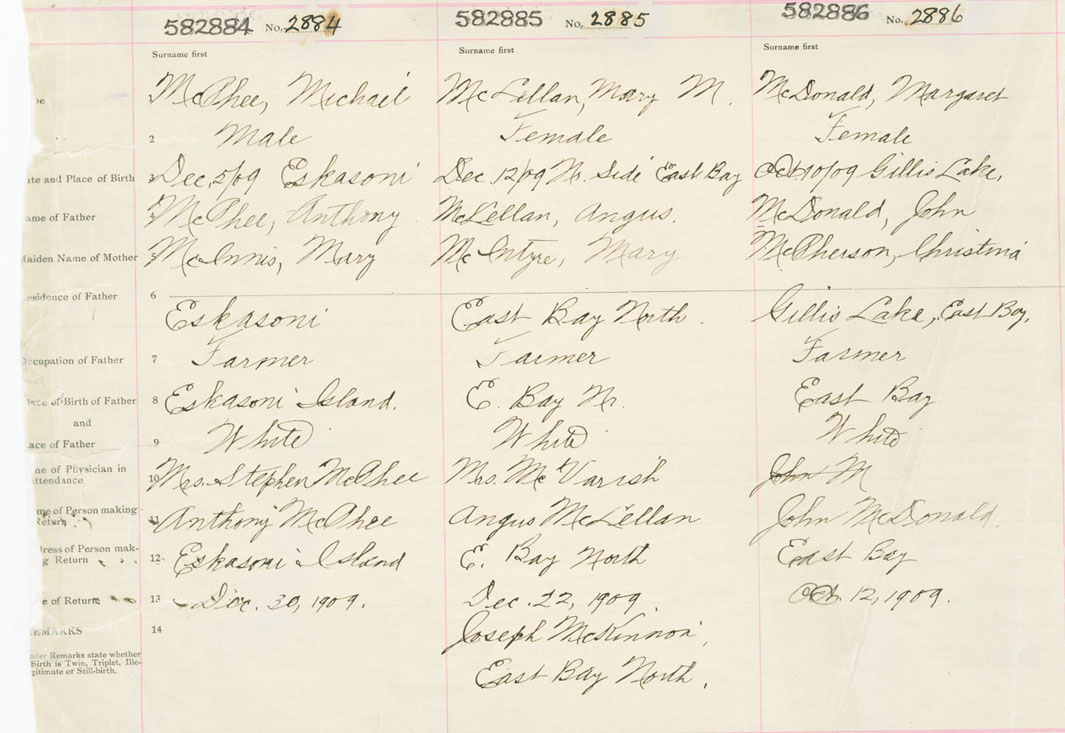 582884 No. 2884 582885 No. 2885 582886 No. 2886
Surname first Surname first Surname first
1 McPhee, Michael McLellan, Mary M. McDonald, Margaret
2 Male Female Female
ate and Place of Birth 3 Dec, 5/09 Eskasoni Dec 12/09 N. Side East Bay Oct 10/09 Gillis Lake,
ame of Father 4 McPhee, Anthony McLellan, Angus. McDonald, John
aiden Name of Mother 5 McInnis, Mary McIntyre, Mary McPherson, Christina
esidence of Father 6 Eskasoni East Bay North. Gillis Lake, East Bay,
Occupation of Father 7 Farmer Farmer Farmer
lace of Birth of Father 8 Eskasoni Island. E. Bay N. East Bay
and
ace of Father 9 White White White
me of Physician in
ttendance 10 Mrs. Stephen McPhee Mrs. McVarish John M
me of Person making
Return 11 Anthony McPhee Angus McLellan John McDonald.
dress of Person mak-
g Return 12 Eskasoni Island E. Bay North East Bay
e of Return 13 Dec. 30, 1909. Dec. 22, 1909. Oct. 12, 1909.
EMARKS 14 Joseph McKinnon,
nder Remarks state whether
Birth is Twin, Triplet, Ille-
gitimate or Still-birth.
East Bay North.